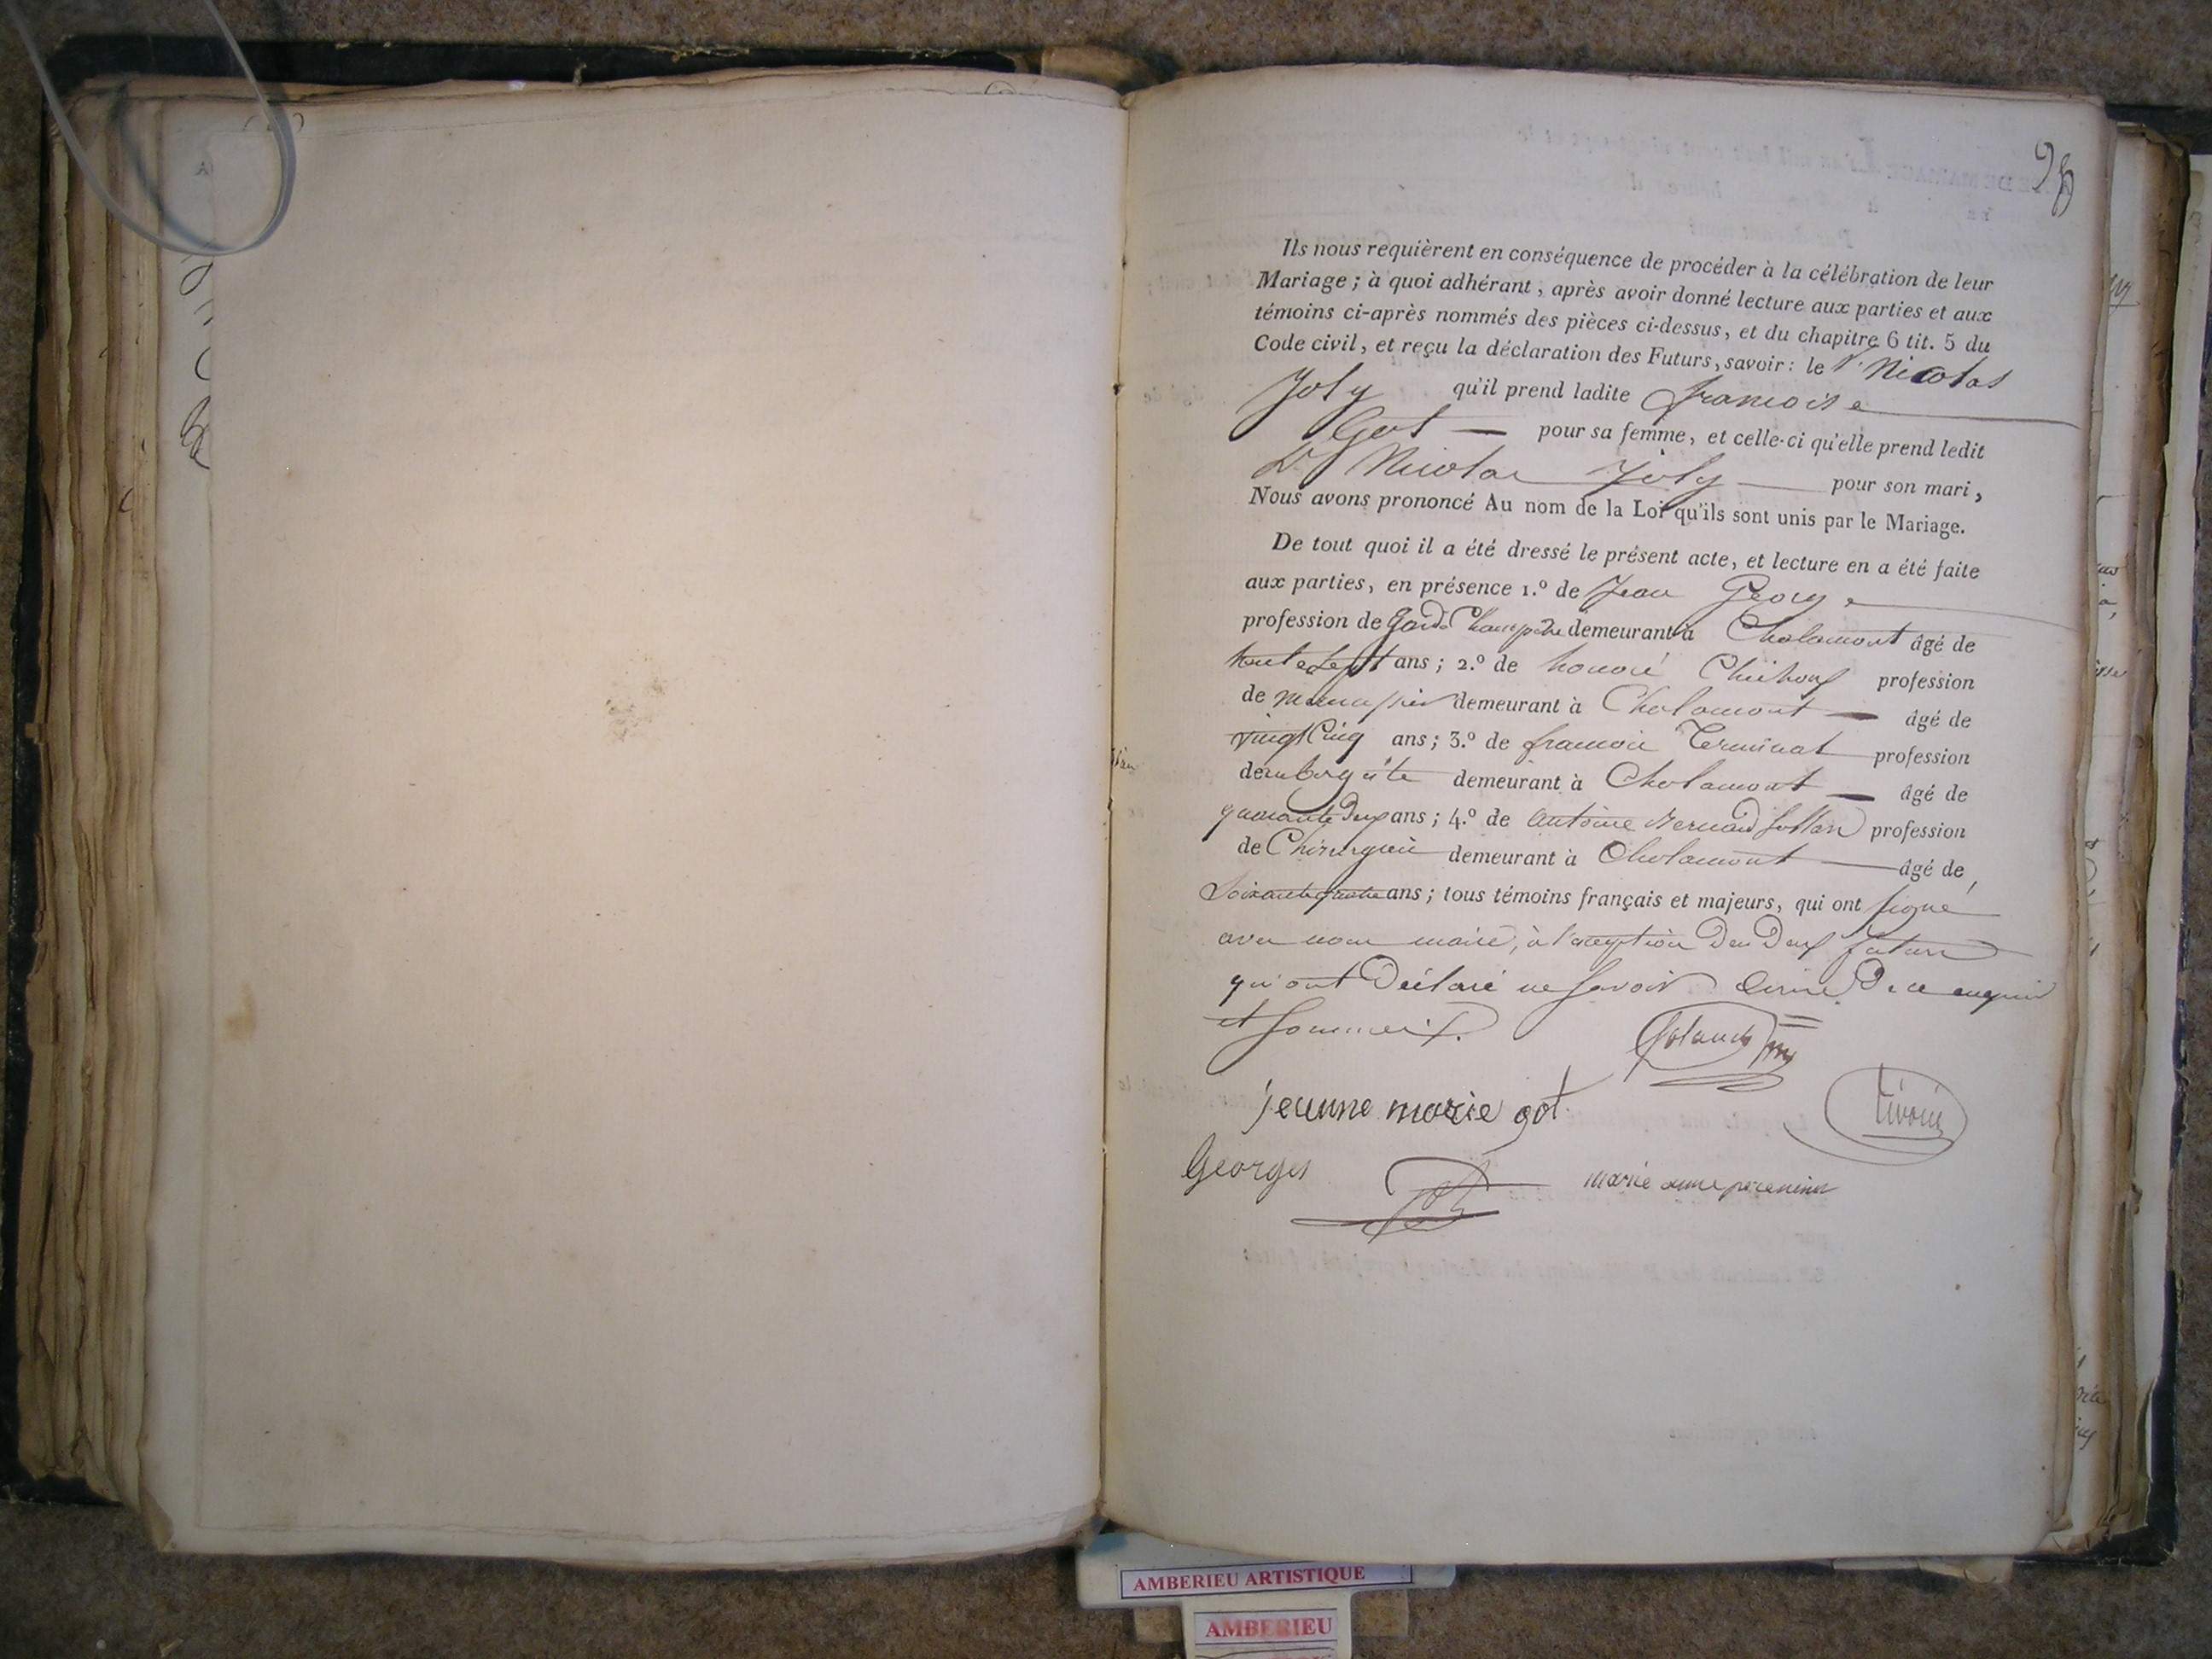 95
Ils nous requièrent en conséquence de procéder à la célébration de leur
Mariage ; à quoi adhérant, après avoir donné lecture aux parties et aux
témoins ci-après nommés des pièces ci-dessus, et du chapitre 6 tit. 5 du
Code civil, et reçu la déclaration des Futurs, savoir : le Sr. Nicolas
Joly qu'il prend ladite francoise
Got — pour sa femme, et celle-ci qu'elle prend ledit
Sr Nicolas Joly — pour son mari,
Nous avons prononcé Au nom de la Loi qu'ils sont unis par le Mariage.
De tout quoi il a été dressé le présent acte, et lecture en a été faite
aux parties, en présence 1.º de Jean George
profession de Garde Champetre demeurant à Chalamont âgé de
trente sept ans ; 2.º de honoré profession
de demeurant à Chalamont — âgé de
vingt cinq ans ; 3.º de francois Terminat profession
de aubergiste demeurant à Chalamont — âgé de
quarante deux ans ; 4.º de antoine Bernard profession
de Chirurgien demeurant à Chalamont — âgé de
Soixante quatre ans ; tous témoins français et majeurs, qui ont signé
avec nous maire, à l'exception des deux futurs
qui ont déclaré ne savoir Ecrire de ce enquis
et sommeis.
jeanne marie got
Georges
marie anne
AMBERIEU ARTISTIQUE
AMBERIEU